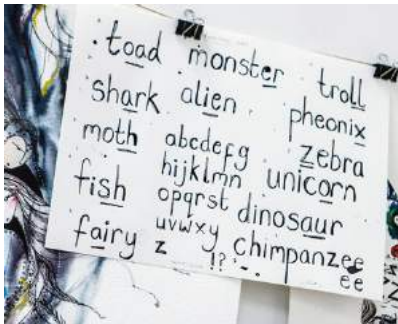 toad monster troll
shark alien pheonix
moth abcdefg zebra
hijklmn unicorn
fish opqrst dinosaur
fairy uvwxy chimpanzee
z !? ee